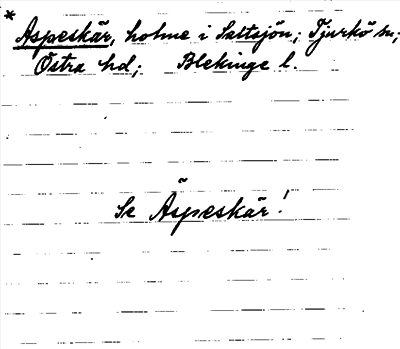 * Aspeskär, holme i Saltsjön; Tjurkö sn;
Östra hd; Blekinge l.
Se Äspeskär!